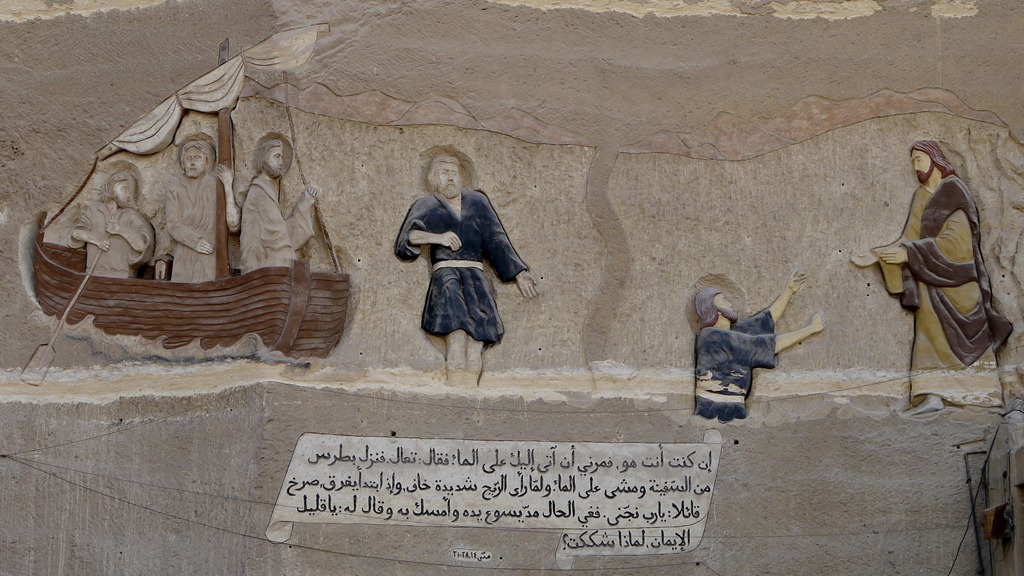 إن كنت أنت هو، فمرني أن آتى إليك على الماء؛ فقال: تعال، فنزل بطرس
من السفينة ومشى على الماء؛ ولما رأى الريح شديدة خاف، وإذ ابتدأ يغرق، صرخ
قائلا: يارب نجني، ففي الحال مد يسوع يده وأمسك به وقال له: ياقليل
الإيمان، لماذا شككت؟
متى ١٤